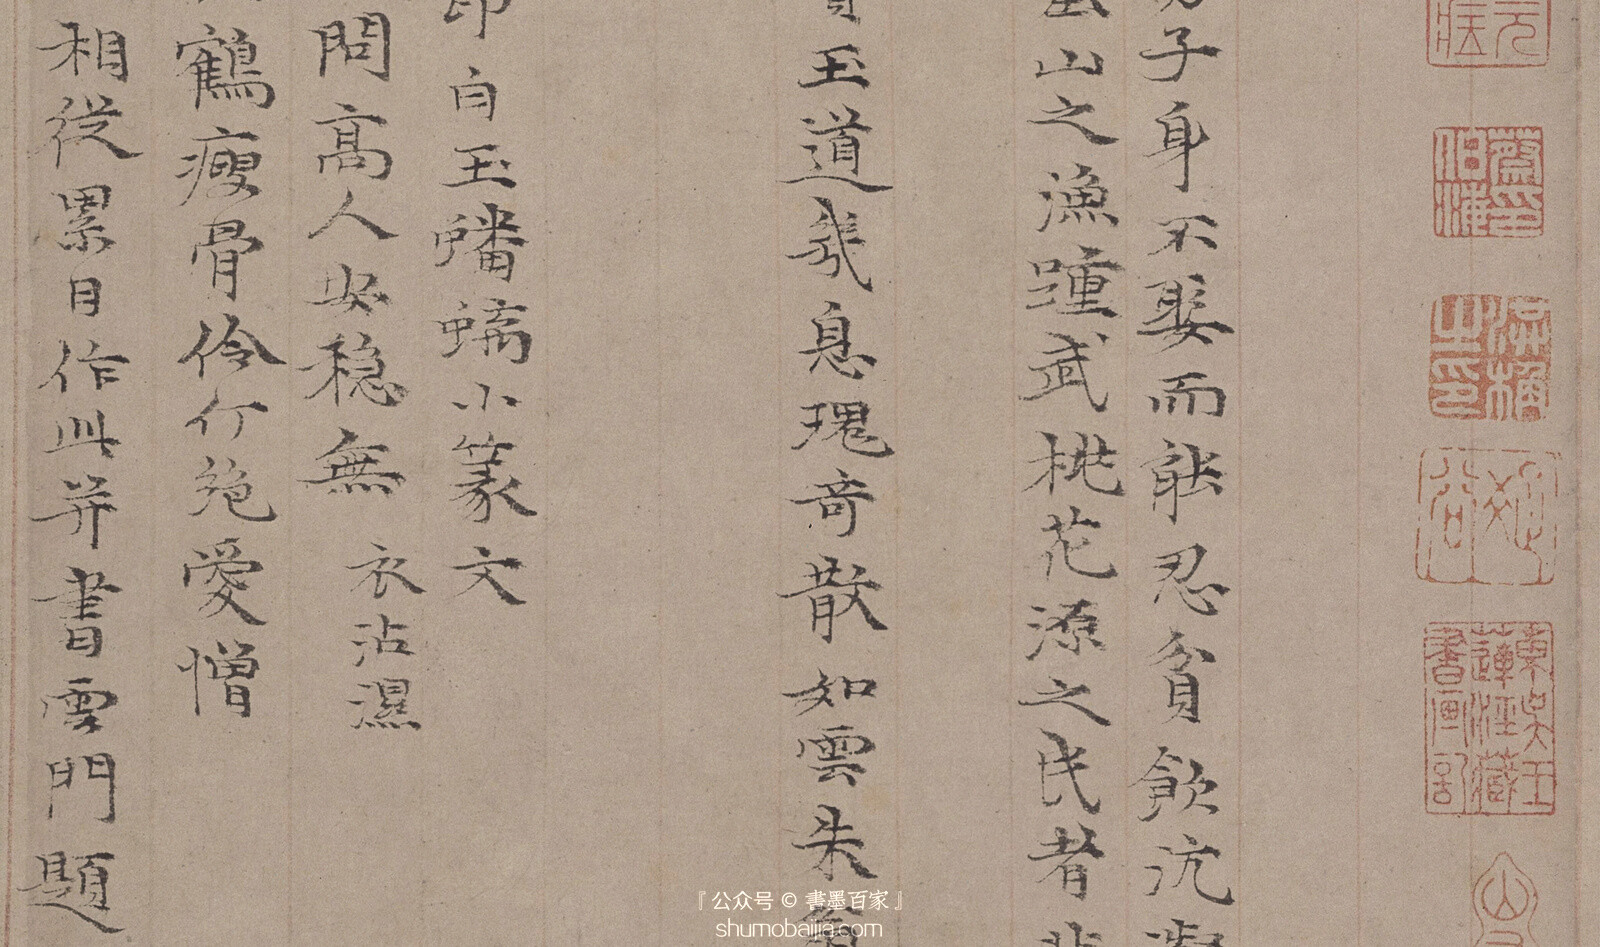 子身不娶而能忍貧飲沆
山之漁踵武桃花源之民者
玉道羲息瑰奇散如雲朱
印白玉蟠螭小篆文
問高人安穩無
衣沾濕
鶴瘦骨伶仃絶愛憎
相従累日作此并書雲門題
蔡印伯海
之印
東吳王蓮涇藏書画記
『公众号 © 書墨百家』
shumobaijia.com